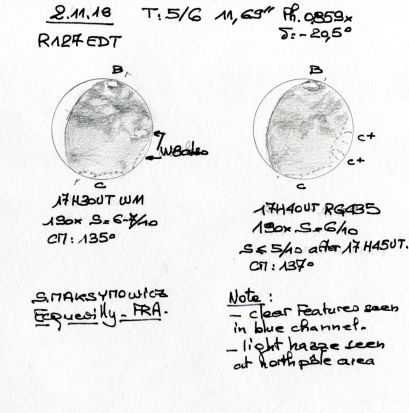 2.11.18 T: 5/6 11,69" Ph. 0.859x
R127EDT δ: -20,5°
B
B
C+
C+
C
C
17H30UT WM
190x S=6-7/10
CM: 135°
17H40UT RG435
190x S=6/10
S≤5/10 after 17H45UT.
CM: 137°
S.MAKSYMOWICZ
Ecquevilly - FRA.
Note :
- clear Features seen
in blue channel.
- light hazze seen
at north pole area